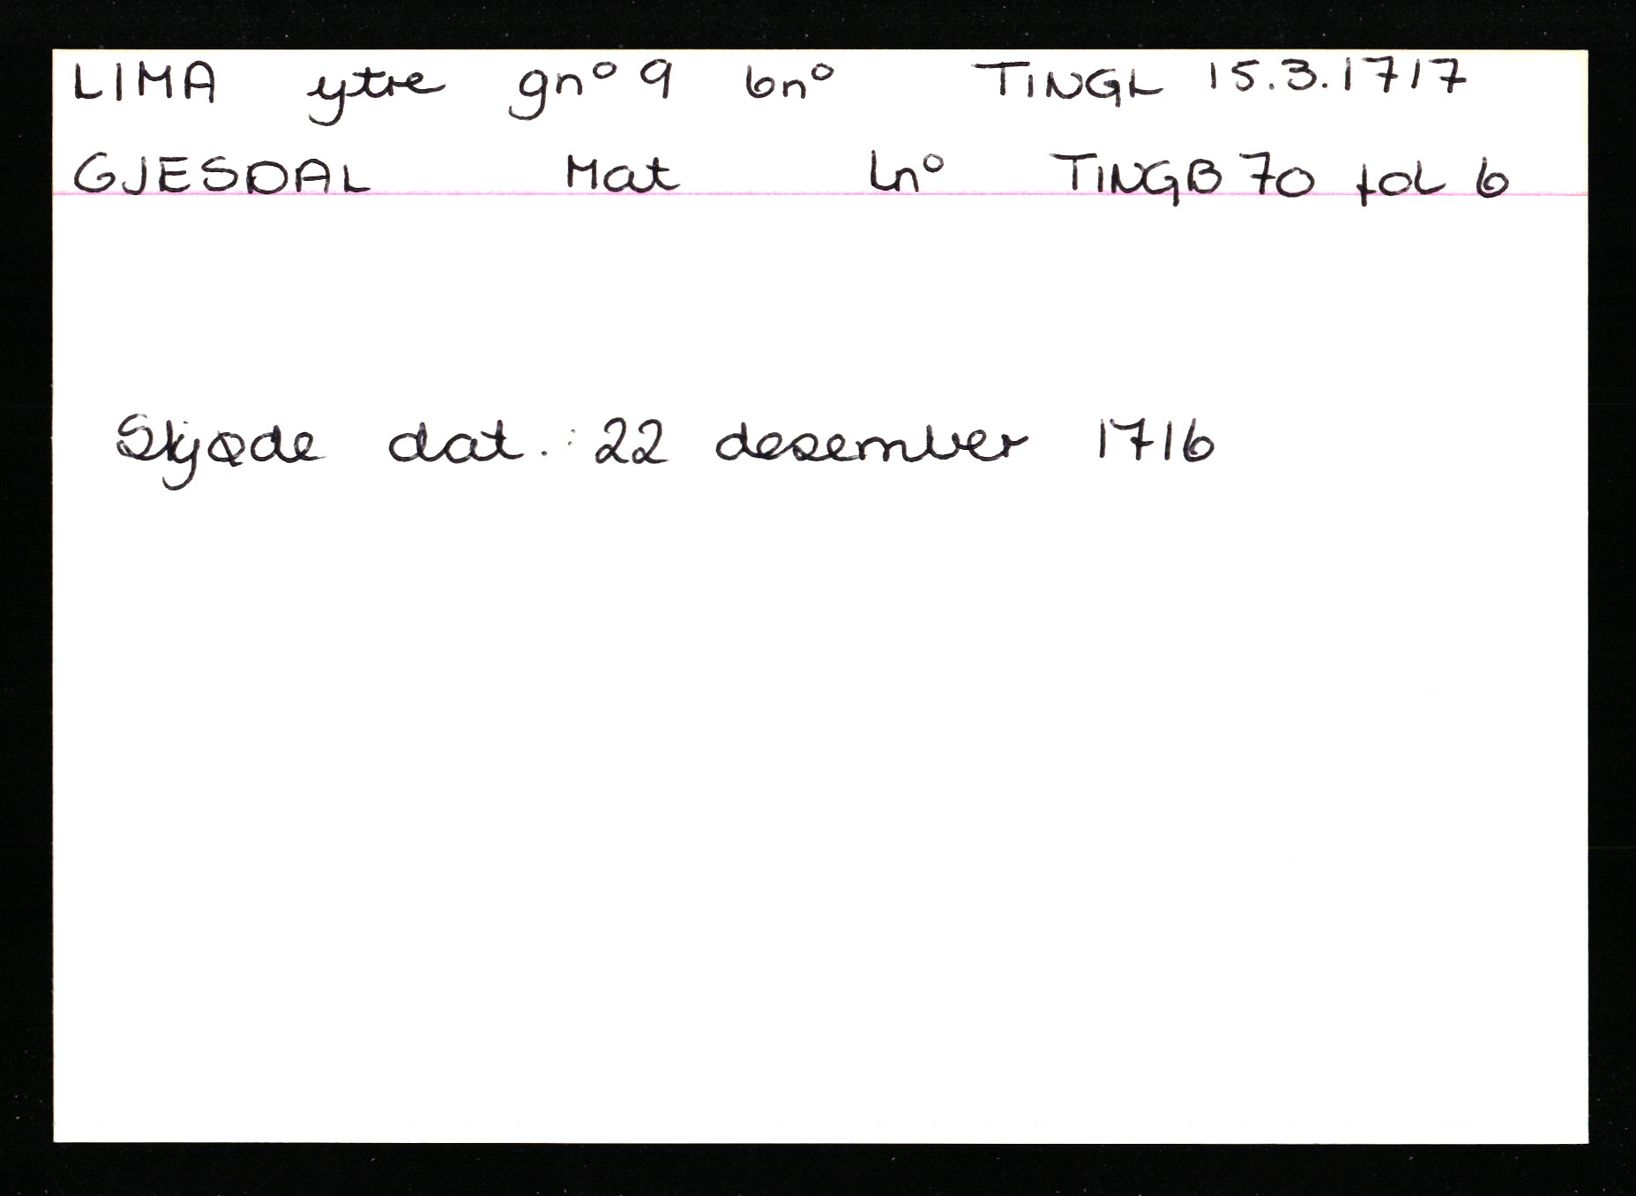 LIMA ytre gnº 9 bnº TINGL 15.3.1717
GJESDAL Mat Lnº TINGB 70 fol 6
Skjøde dat.: 22 desember 1716